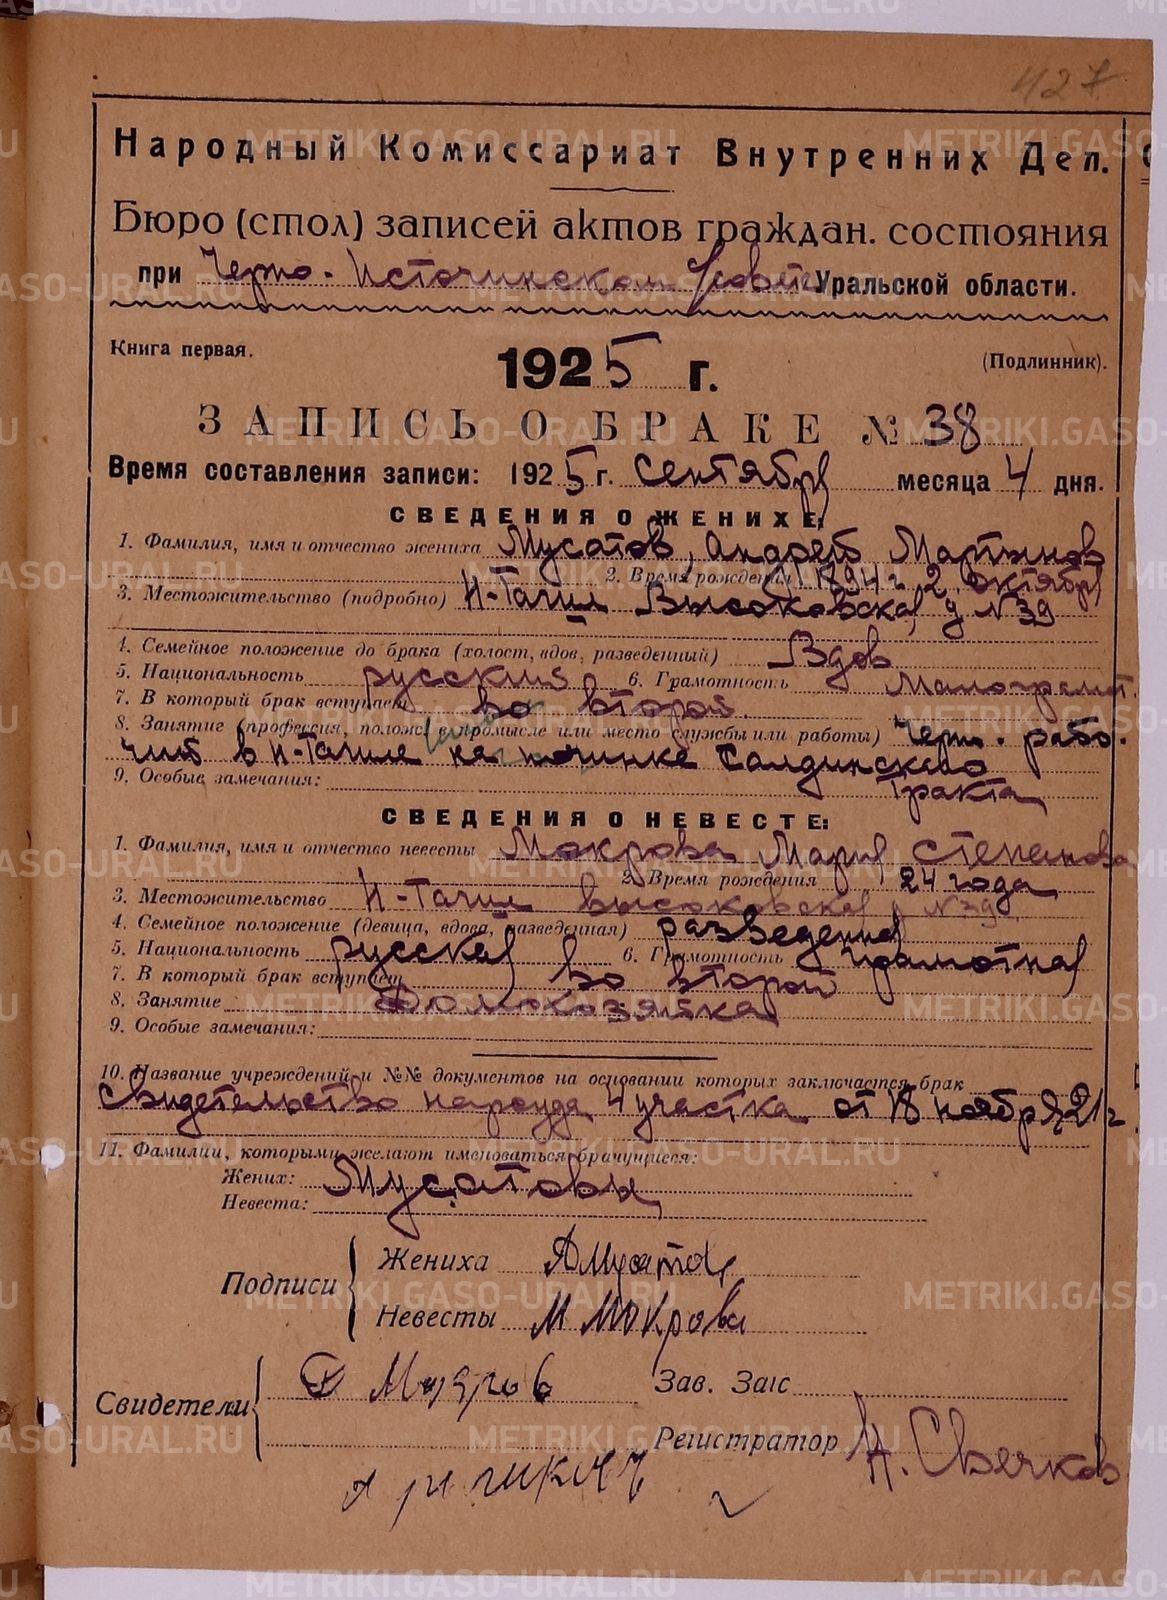 427
Народный Комиссариат Внутренних Дел.
Бюро (стол) записей актов граждан. состояния
при Черно-Источинском Совете Уральской области.
Книга первая.
1925 г.
(Подлинник).
ЗАПИСЬ О БРАКЕ № 38
Время составления записи: 1925 г. Сентября месяца 4 дня.
СВЕДЕНИЯ О ЖЕНИХЕ:
1. Фамилия, имя и отчество жениха Мусатов, Андрей Мартынов
2. Время рождения 1894 г. 2 Октября
3. Местожительство (подробно) Н-Тагил Высоковская д N 39
4. Семейное положение до брака (холост, вдов, разведенный) Вдов
5. Национальность русский 6. Грамотность Малограмот.
7. В который брак вступает во второй.
8. Занятие (профессия, полож. в промысле или место службы или работы) Черно-рабо-
чий в Н-Тагиле на починке Салдинского
Тракта
9. Особые замечания:
СВЕДЕНИЯ О НЕВЕСТЕ:
1. Фамилия, имя и отчество невесты Мокрова Мария Степанова
2. Время рождения 24 года
3. Местожительство Н-Тагил Высоковская д N 39
4. Семейное положение (девица, вдова, разведенная) разведеная
5. Национальность русская 6. Грамотность грамотная
7. В который брак вступает во второй
8. Занятие Домохозяйка
9. Особые замечания:
10. Название учреждений и №№ документов на основании которых заключается брак
Свидетельство нарсуда 4 участка от 18 ноября 21 г.
11. Фамилии, которыми желают именоваться брачущиеся:
Жених: Мусатовы
Невеста:
Подписи
Жениха АМусатов
Невесты М Мокрова
Свидетели
Зав. Загс
Регистратор Н. Свечков
METRIKI.GASO-URAL.RU